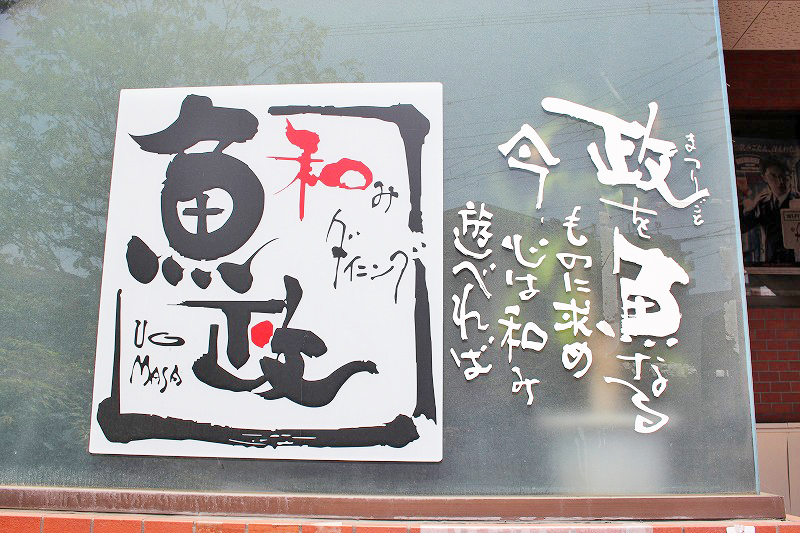 和み
ダイニング
魚政
UO
MASA
政をまつりごと魚なる
ものに求め
今、心は和み
遊べれば